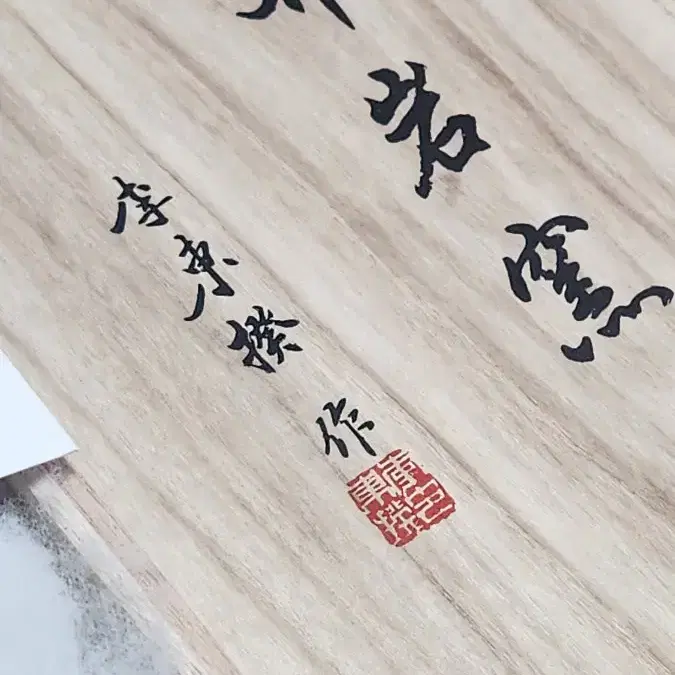 岩窯
李東揆作